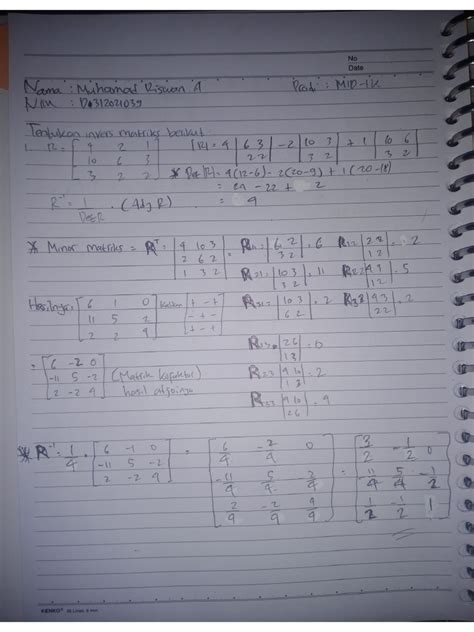 No
Date
Nama : Muhamad Riswan A Prodi : MID-1K
NIM : D0312021039
Tentukan invers matriks berikut
1. R = [4 2 1 / 10 6 3 / 3 2 2] |R| = 4 |6 3 / 2 2| - 2 |10 3 / 3 2| + 1 |10 6 / 3 2|
* Det |R| = 4(12-6) - 2(20-9) + 1(20-18)
= 24 - 22 + 2
R⁻¹ = 1/Det R . (Adj R) = 4
* Minor matriks = Rᵀ = [4 10 3 / 2 6 2 / 1 3 2] = R11 = |6 2 / 3 2| = 6 R12 |2 2 / 1 2| = 2
R21 = |10 3 / 3 2| = 11 R22 |4 3 / 1 2| = 5
Hasilnya = [6 1 0 / 11 5 2 / 2 2 4] [+ - + / - + - / + - +] R31 = |10 3 / 6 2| = 2 R32 |4 3 / 2 2| = 2
R13 = |2 6 / 1 3| = 0
= [6 -2 0 / -11 5 -2 / 2 -2 4] (Matrik kofaktor) R23 |4 10 / 1 3| = 2
hasil adjoinya R33 |4 10 / 2 6| = 4
* R⁻¹ = 1/4 . [6 -1 0 / -11 5 -2 / 2 -2 4] = [6/4 -2/4 0 / -11/4 5/4 2/4 / 2/4 -2/4 4/4] = [3/2 -1/2 0 / -11/4 5/4 -1/2 / 1/2 -1/2 1]
KENKO